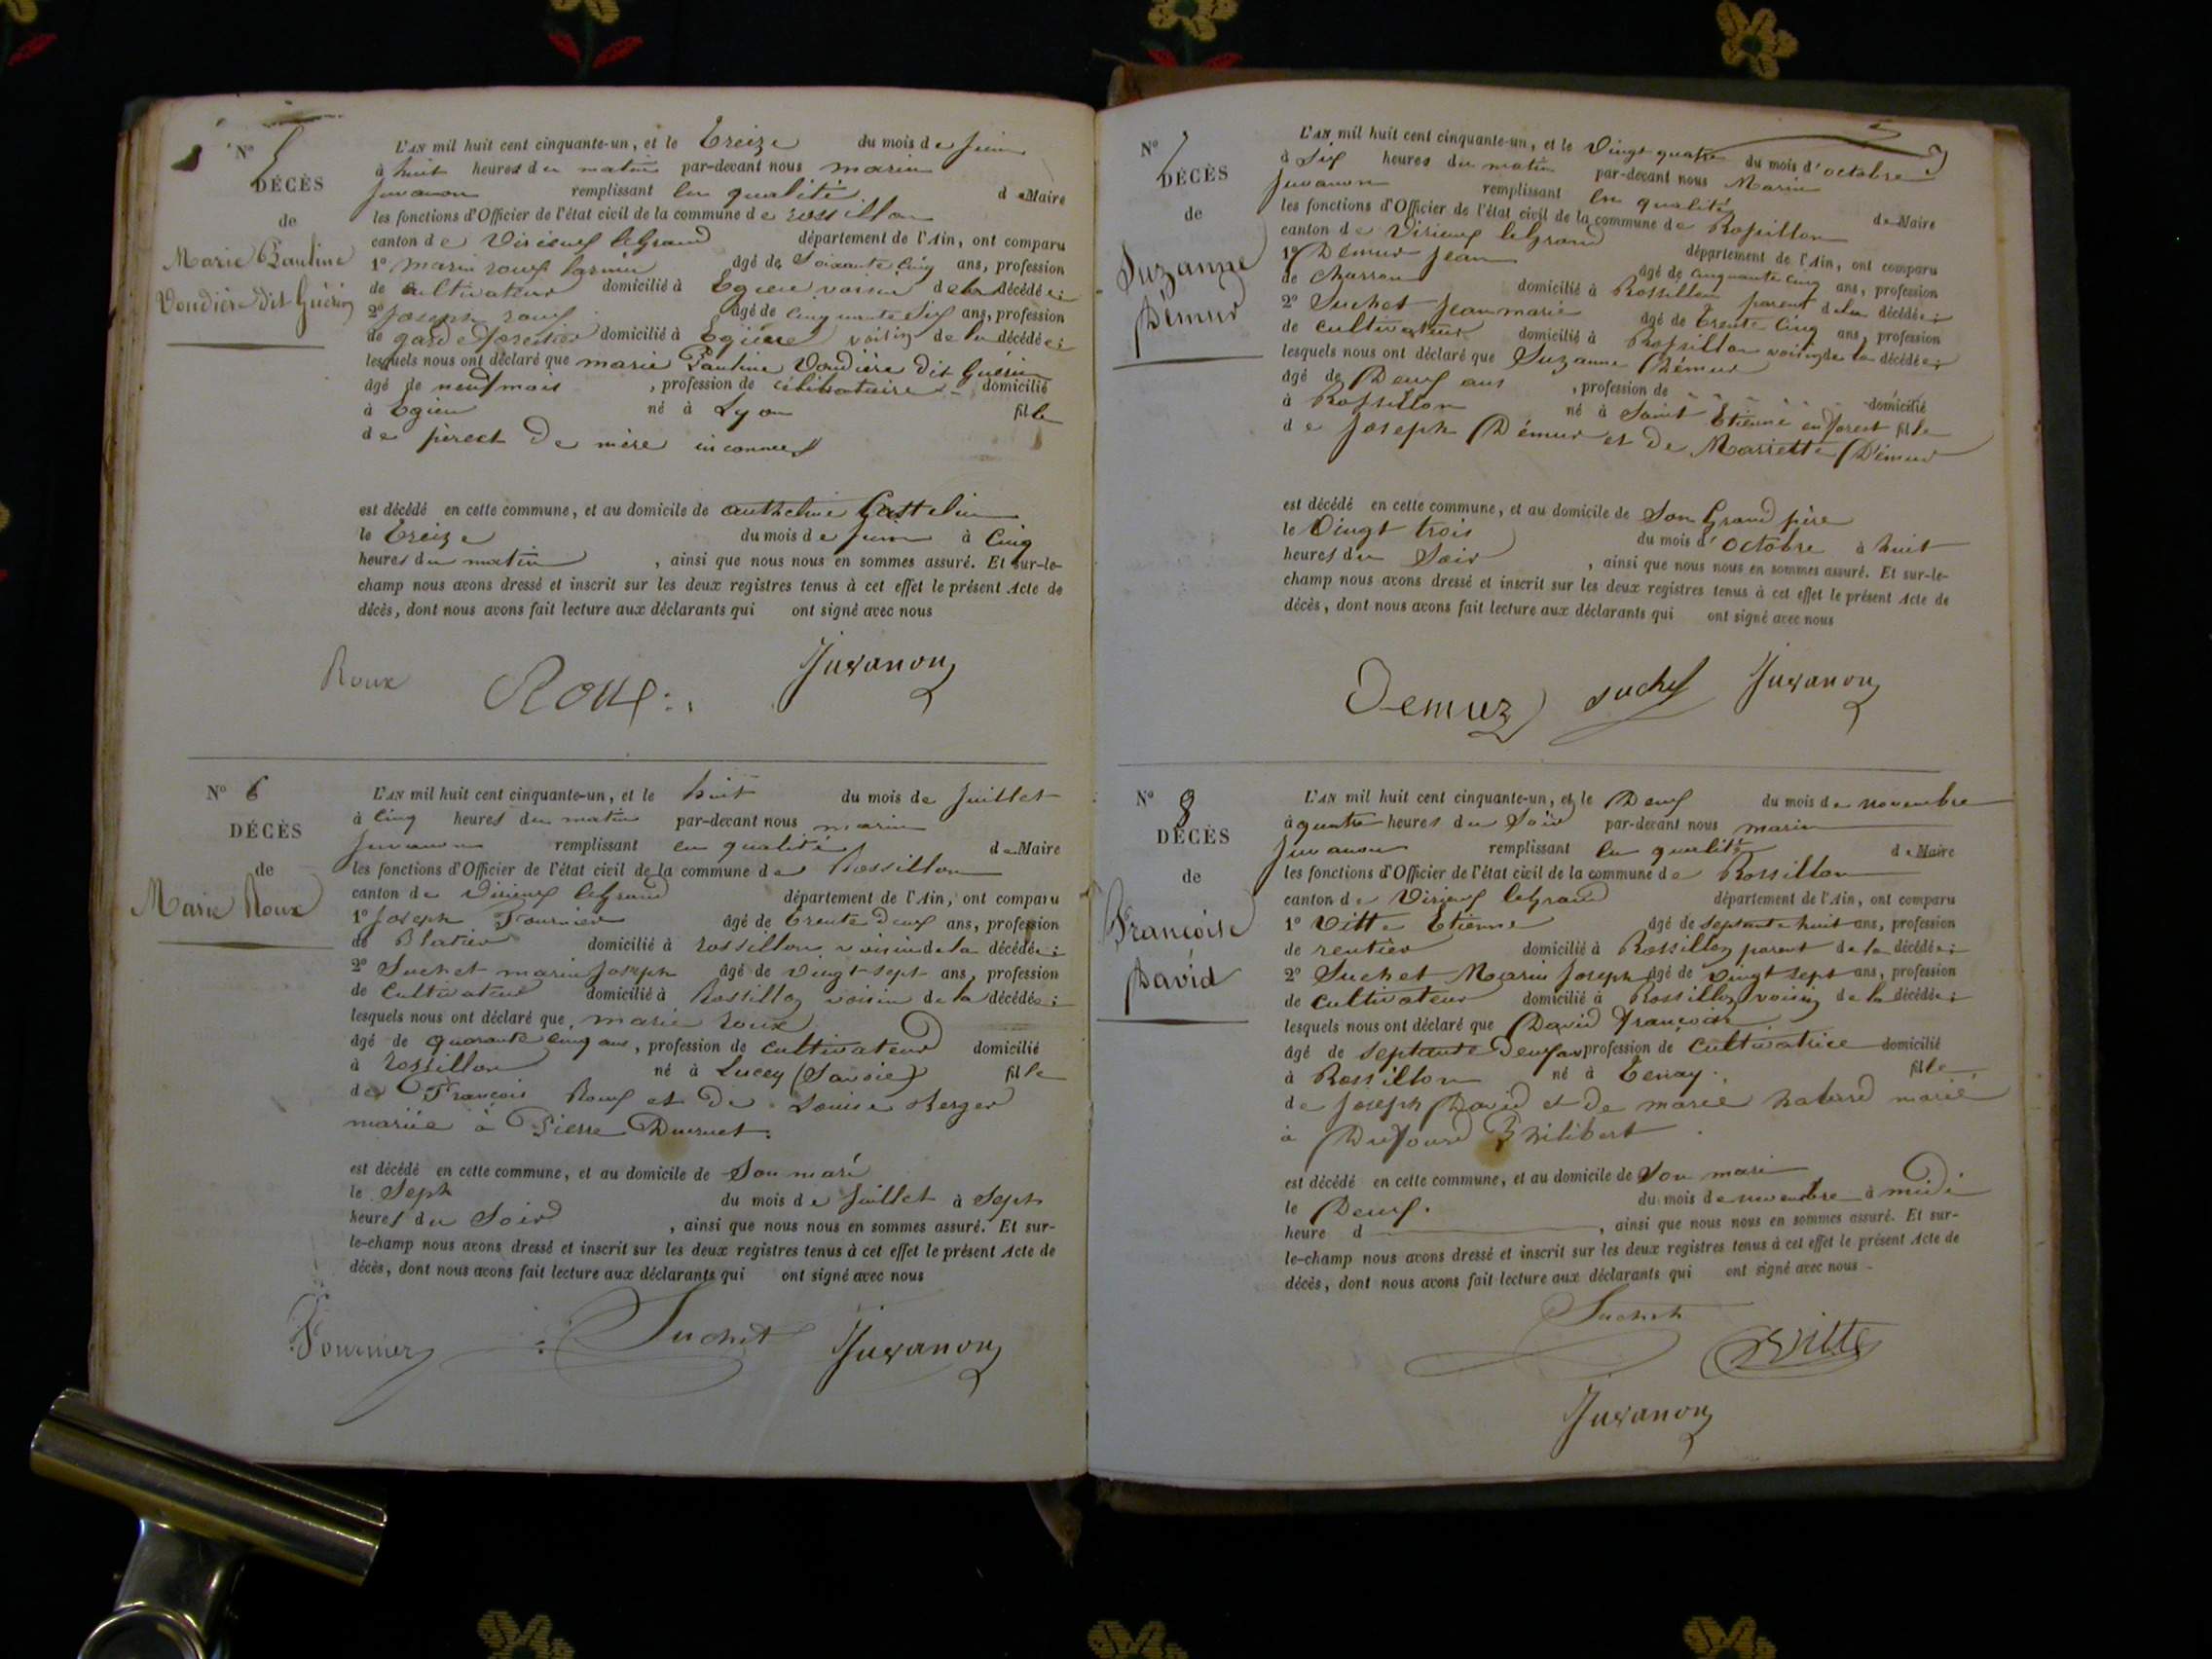 N° 5
DÉCÈS
de
Marie Pauline
Voudière dit Guérin
L'AN mil huit cent cinquante-un, et le treize du mois de juin
à huit heures du matin par-devant nous marin
juvanon remplissant en qualité de Maire
les fonctions d'Officier de l'état civil de la commune de rossillon
canton de Virieux leGrand département de l'Ain, ont comparu
1° marin roux âgé de Soixante cinq ans, profession
de cultivateur domicilié à Egieu voisin de la décédée;
2° Joseph roux âgé de cinquante Six ans, profession
de garde forestier domicilié à Egieu voisin de la décédée;
lesquels nous ont déclaré que marie Pauline Voudière dit Guérin
âgé de neuf mois, profession de célibataire domicilié
à Egieu né à Lyon fille
de père et de mère inconnus
est décédé en cette commune, et au domicile de anthelme
le treize du mois de juin à Cinq
heures du matin, ainsi que nous nous en sommes assuré. Et sur-le-
champ nous avons dressé et inscrit sur les deux registres tenus à cet effet le présent Acte de
décès, dont nous avons fait lecture aux déclarants qui ont signé avec nous
Roux Roux Juvanon
N° 6
DÉCÈS
de
Marie Roux
L'AN mil huit cent cinquante-un, et le huit du mois de juillet
à cinq heures du matin par-devant nous marin
juvanon remplissant en qualité de Maire
les fonctions d'Officier de l'état civil de la commune de Rossillon
canton de Virieux leGrand département de l'Ain, ont comparu
1° Joseph Fournier âgé de trente deux ans, profession
de Blatier domicilié à rossillon voisin de la décédée;
2° Suchet marin Joseph âgé de vingt-sept ans, profession
de Cultivateur domicilié à Rossillon voisin de la décédée;
lesquels nous ont déclaré que marie roux
âgé de quarante cinq ans, profession de cultivateur domicilié
à rossillon né à Lucey (Savoie) fille
de François Roux et de Louise Berger
mariée à Pierre
est décédé en cette commune, et au domicile de Son mari
le Sept du mois de juillet à Sept
heures du Soir, ainsi que nous nous en sommes assuré. Et sur-
le-champ nous avons dressé et inscrit sur les deux registres tenus à cet effet le présent Acte de
décès, dont nous avons fait lecture aux déclarants qui ont signé avec nous
Fournier Suchet Juvanon
N° 7
DÉCÈS
de
Suzanne
Démur
L'AN mil huit cent cinquante-un, et le Vingt quatre du mois d'octobre
à Six heures du matin par-devant nous Marin
juvanon remplissant en qualité de Maire
les fonctions d'Officier de l'état civil de la commune de Rossillon
canton de Virieux leGrand département de l'Ain, ont comparu
1° Démur Jean âgé de cinquante cinq ans, profession
de charron domicilié à Rossillon parent de la décédée;
2° Suchet Jean marie âgé de trente cinq ans, profession
de cultivateur domicilié à Rossillon voisin de la décédée;
lesquels nous ont déclaré que Suzanne Démur
âgé de Deux ans, profession de domicilié
à Rossillon né à Saint Etienne en forest fille
de Joseph Démur et de Mariette Démur
est décédé en cette commune, et au domicile de Son Grand père
le Vingt trois du mois d'octobre à huit
heures du Soir, ainsi que nous nous en sommes assuré. Et sur-le-
champ nous avons dressé et inscrit sur les deux registres tenus à cet effet le présent Acte de
décès, dont nous avons fait lecture aux déclarants qui ont signé avec nous
Demur suchet Juvanon
N° 8
DÉCÈS
de
Francoise
David
L'AN mil huit cent cinquante-un, et le Deux du mois de novembre
à quatre heures du Soir par-devant nous marin
juvanon remplissant en qualité de Maire
les fonctions d'Officier de l'état civil de la commune de Rossillon
canton de Virieux leGrand département de l'Ain, ont comparu
1° Vitte Etienne âgé de septante huit ans, profession
de rentier domicilié à Rossillon parent de la décédée;
2° Suchet Marin Joseph âgé de vingt sept ans, profession
de cultivateur domicilié à Rossillon voisin de la décédée;
lesquels nous ont déclaré que David françoise
âgé de septante deux ans profession de Cultivatrice domicilié
à Rossillon né à Tenay fille
de Joseph David et de marie marié
à Dufour Philibert
est décédé en cette commune, et au domicile de Son mari
le Deux. du mois de novembre à midi
heure d , ainsi que nous nous en sommes assuré. Et sur-
le-champ nous avons dressé et inscrit sur les deux registres tenus à cet effet le présent Acte de
décès, dont nous avons fait lecture aux déclarants qui ont signé avec nous
Suchet Vitte
Juvanon